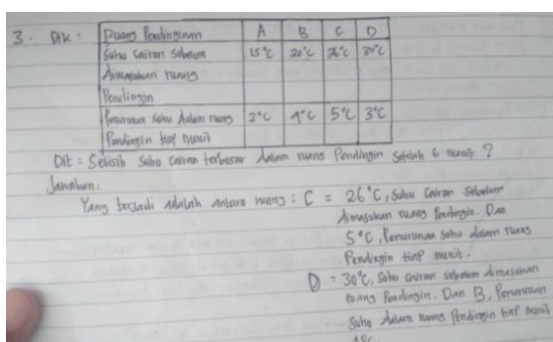 3. Dik : Ruang Pendinginan A B C D
Suhu Cairan Sebelum 15°C 20°C 26°C 30°C
Dimasukan ruang
Pendingin
Penurunan Suhu dalam ruang 2°C 4°C 5°C 3°C
Pendingin tiap menit
Dit : Selisih Suhu Cairan terbesar dalam ruang Pendingin Setelah 6 menit ?
Jawaban :
Yang terjadi adalah antara ruang : C = 26°C, Suhu Cairan Sebelum
dimasukan ruang Pendingin. Dan
5°C, Penurunan Suhu dalam ruang
Pendingin tiap menit.
D = 30°C, Suhu cairan sebelum dimasukan
ruang Pendingin. Dan B, Penurunan
Suhu dalam ruang Pendingin tiap menit